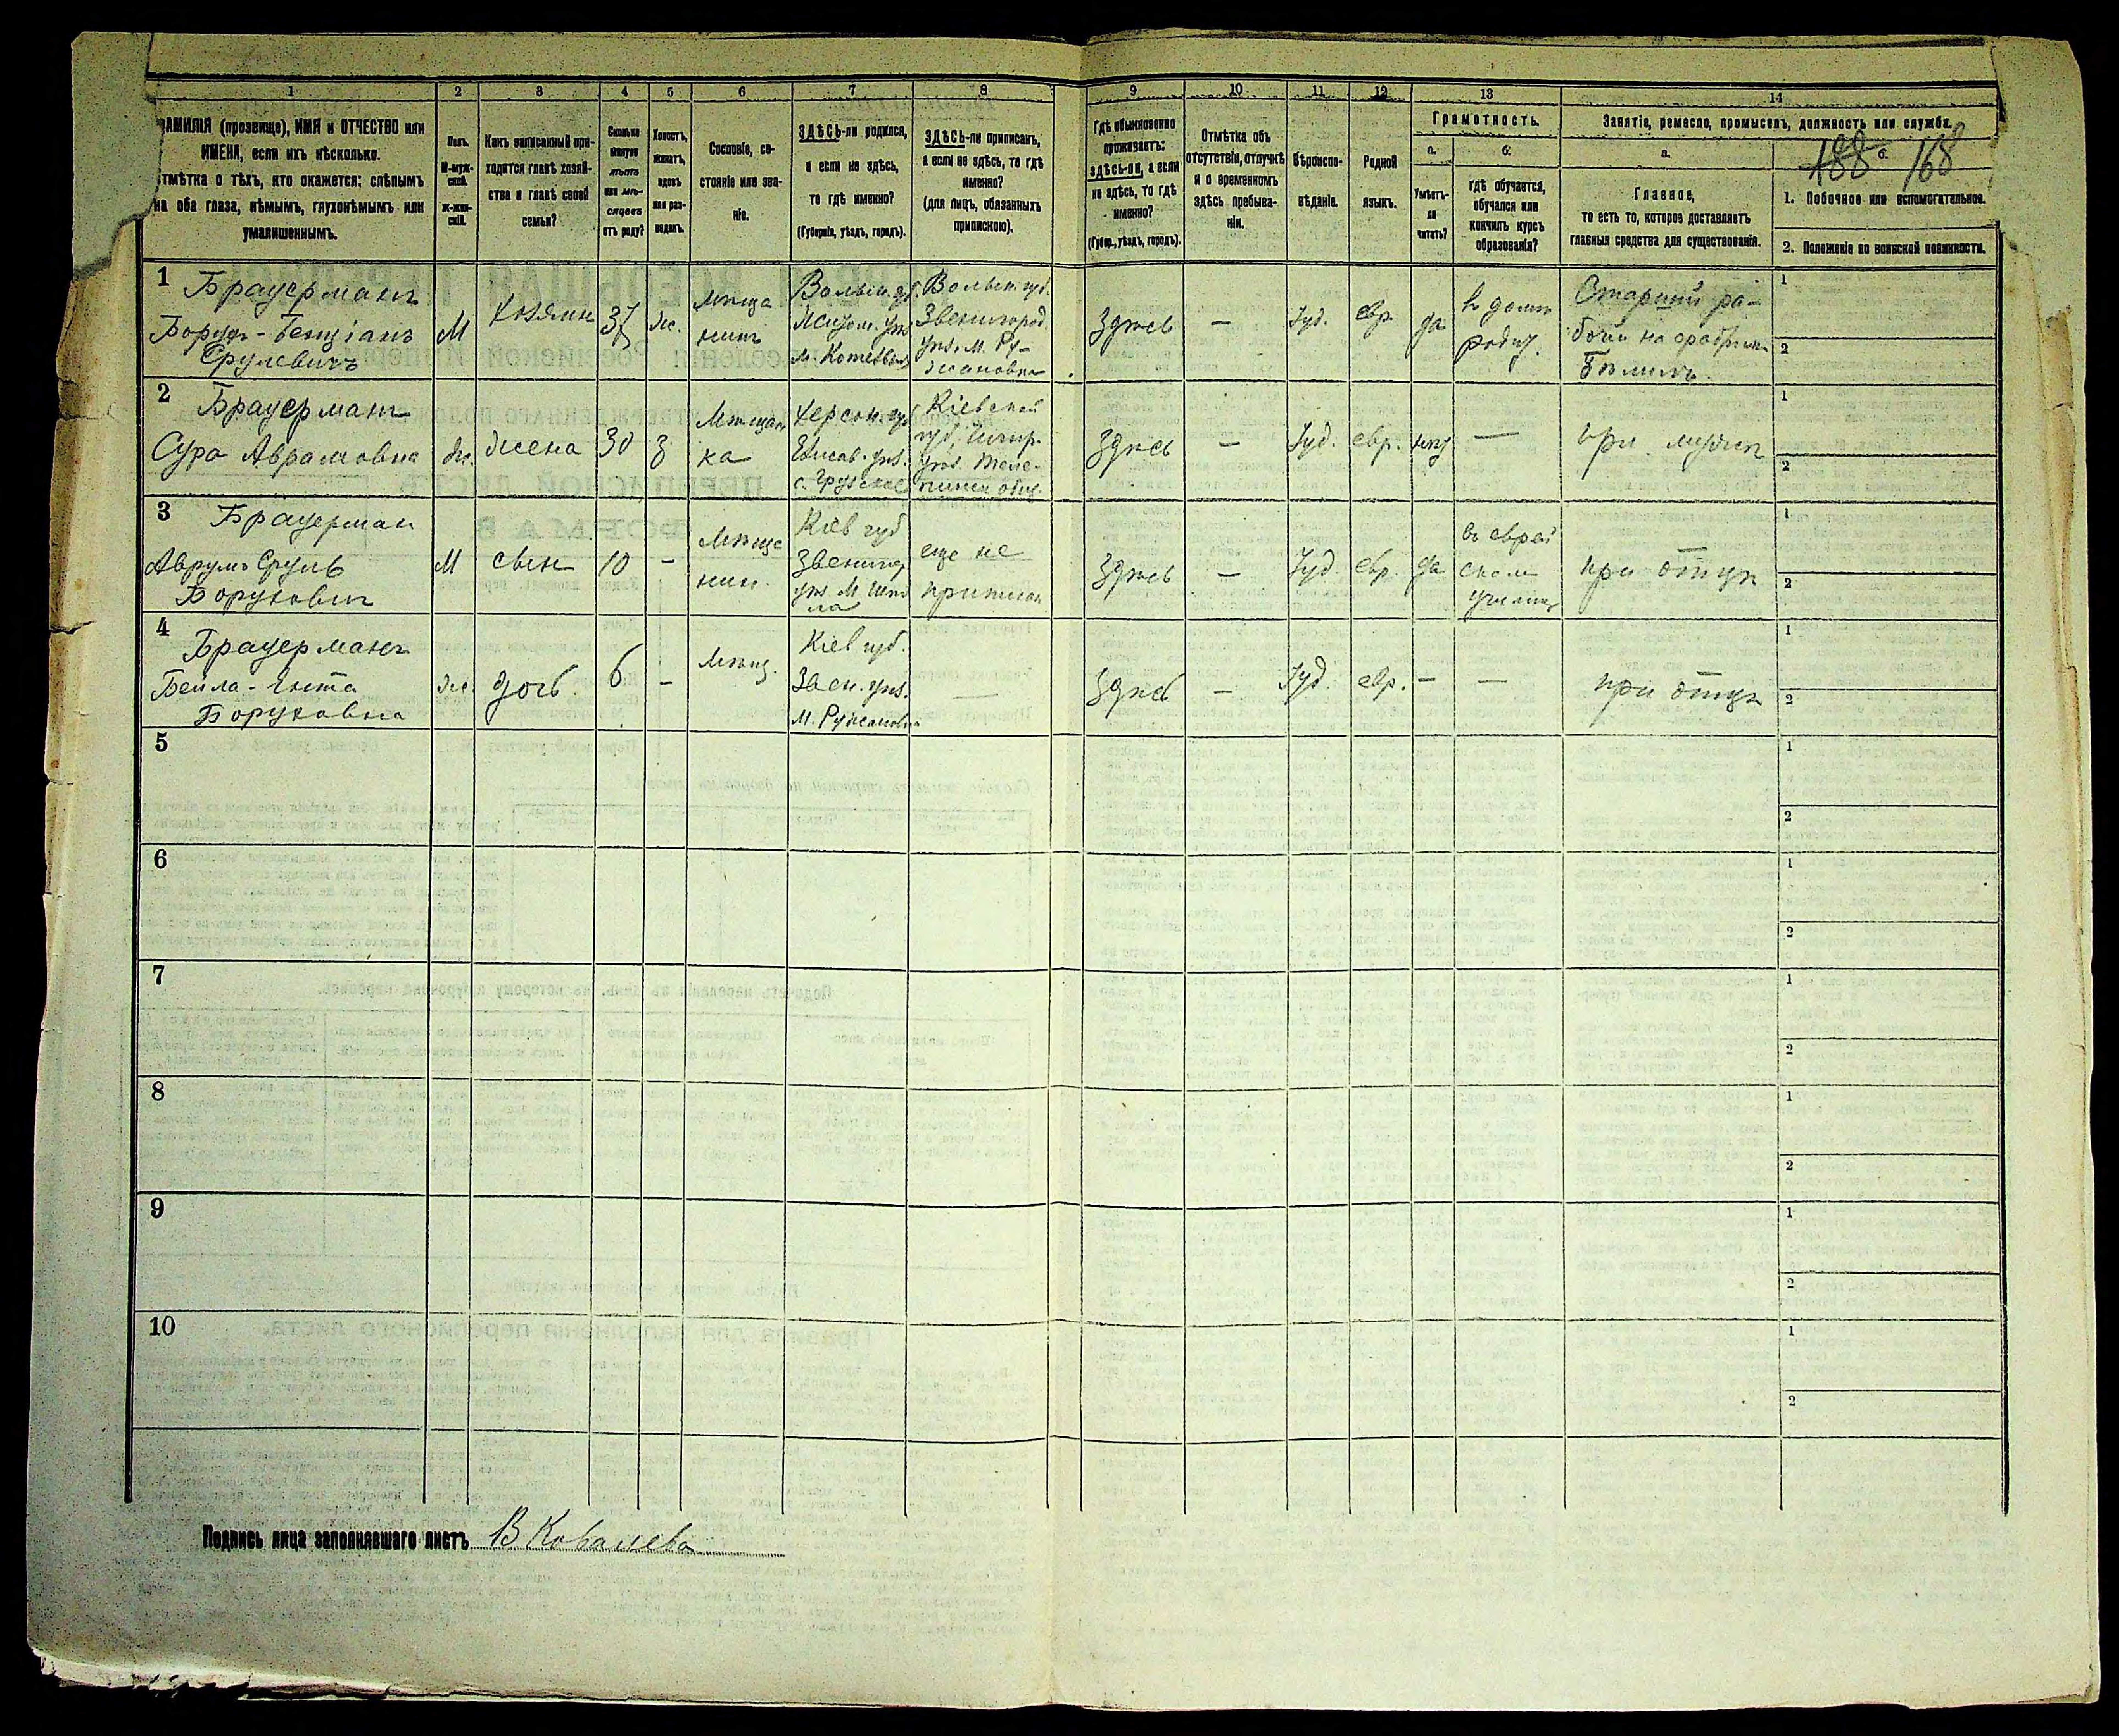 1 2 3 4 5 6 7 8 9 10 11 12 13 14
ФАМИЛІЯ (прозвище), ИМЯ и ОТЧЕСТВО или
ИМЕНА, если ихъ нѣсколько.
Отмѣтка о тѣхъ, кто окажется: слѣпымъ
на оба глаза, нѣмымъ, глухонѣмымъ или
умалишеннымъ.
Полъ.
М-муж-
ской.
ж-жен-
скій.
Какъ записанный при-
ходится главѣ хозяй-
ства и главѣ своей
семьи?
Сколько
минуло
лѣтъ
или мѣ-
сяцевъ
отъ роду?
Холостъ,
женатъ,
вдовъ
или раз-
веденъ.
Сословіе, со-
стояніе или зва-
ніе.
ЗДѢСЬ-ли родился,
а если не здѣсь,
то гдѣ именно?
(Губернія, уѣздъ, городъ).
ЗДѢСЬ-ли приписанъ,
а если не здѣсь, то гдѣ
именно?
(для лицъ, обязанныхъ
припискою).
Гдѣ обыкновенно
проживаетъ:
здѣсь-ли, а если
не здѣсь, то гдѣ
именно?
(Губер., уѣздъ, городъ).
Отмѣтка объ
отсутствіи, отлучкѣ
и о временномъ
здѣсь пребыва-
ніи.
Вѣроиспо-
вѣданіе.
Родной
языкъ.
Грамотность.
а.
Умѣетъ-
ли
читать?
б.
гдѣ обучается,
обучался или
кончилъ курсъ
образованія?
Занятіе, ремесло, промыселъ, должность или служба.
а.
Главное,
то есть то, которое доставляетъ
главныя средства для существованія.
б.
188 168
1. Побочное или вспомогательное.
2. Положеніе по воинской повинности.
1
Брауерманъ
Борух-Бенціанъ
Срулевичъ
М
хозяин
37
же.
мѣща
нинъ
Волын. губ.
м.
Волын. губ.
Звенигород.
уѣз. м. Ру-
жановка
Здѣсь
—
Іуд.
евр.
да
в домѣ
Старший ра-
бочи на фабрики
1
2
2
Брауерман
Сура Аврамовна
же.
жена
30
з
Мѣщан
ка
Херсон. губ.
Елисав. уѣз.
с. Грузское
Кіевской
губ, Чигир.
уѣз. Теле-
пинск общ.
Здѣсь
—
Іуд.
евр.
нѣт
—
при мужѣ
1
2
3
Брауерман
Аврумъ Сруль
Борухович
М
сын
10
-
мѣща
нин.
Кіев губ
Звениг
уѣз. М. Шпо
ла
еще не
приписан
Здѣсь
—
Іуд.
евр.
да
въ еврей
ском
училищ
при отцѣ
1
2
4
Брауерманъ
Бейла-Гитта
Боруховна
же.
дочь.
6
-
мѣщ.
Кіев губ.
Звен. уѣз.
М. Ружановка
—
Здѣсь
—
Іуд.
евр.
-
—
при отцѣ
1
2
5
1
2
6
1
2
7
1
2
8
1
2
9
1
2
10
1
2
Подпись лица заполнявшаго листъ В Ковалева